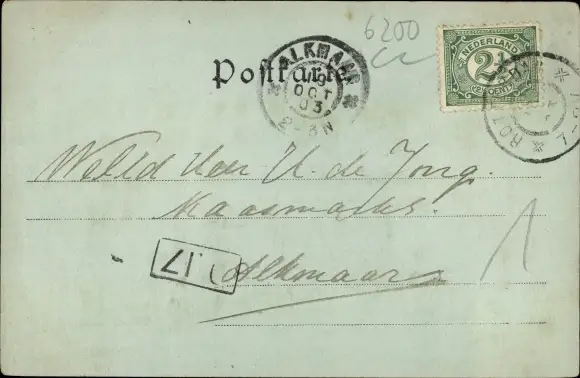 6200
Postkarte
ALKMAAR
19
OCT
03
2-3N
NEDERLAND
2½
CENT
ROT
Weled Heer H. de Jong.
Kaasmarkt.
Alkmaar
17